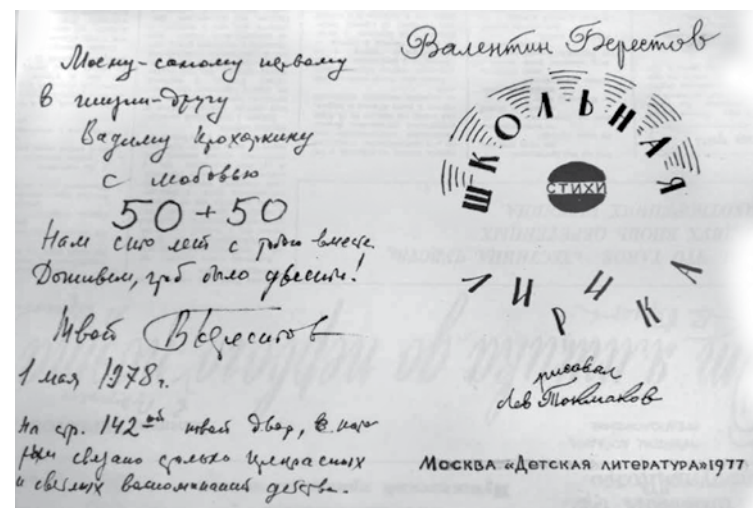 Моему - самому первому
в жизни - другу
Вадиму Прохоркину
с любовью
50 + 50
Нам сто лет с тобою вместе.
Доживем, чтоб было двести!
Твой В Берестов
1 мая 1978 г.
На стр. 142ой твой двор, с кото-
рым связано столько прекрасных
и светлых воспоминаний детства.
Валентин Берестов
ШКОЛЬНАЯ
СТИХИ
ЛИРИКА
рисовал
Лев Токмаков
МОСКВА «ДЕТСКАЯ ЛИТЕРАТУРА» 1977